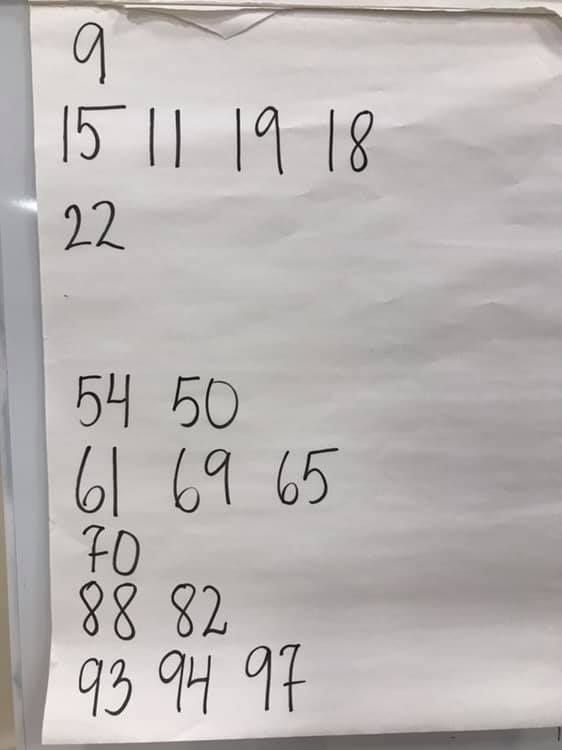 9
15 11 19 18
22
54 50
61 69 65
70
88 82
93 94 97